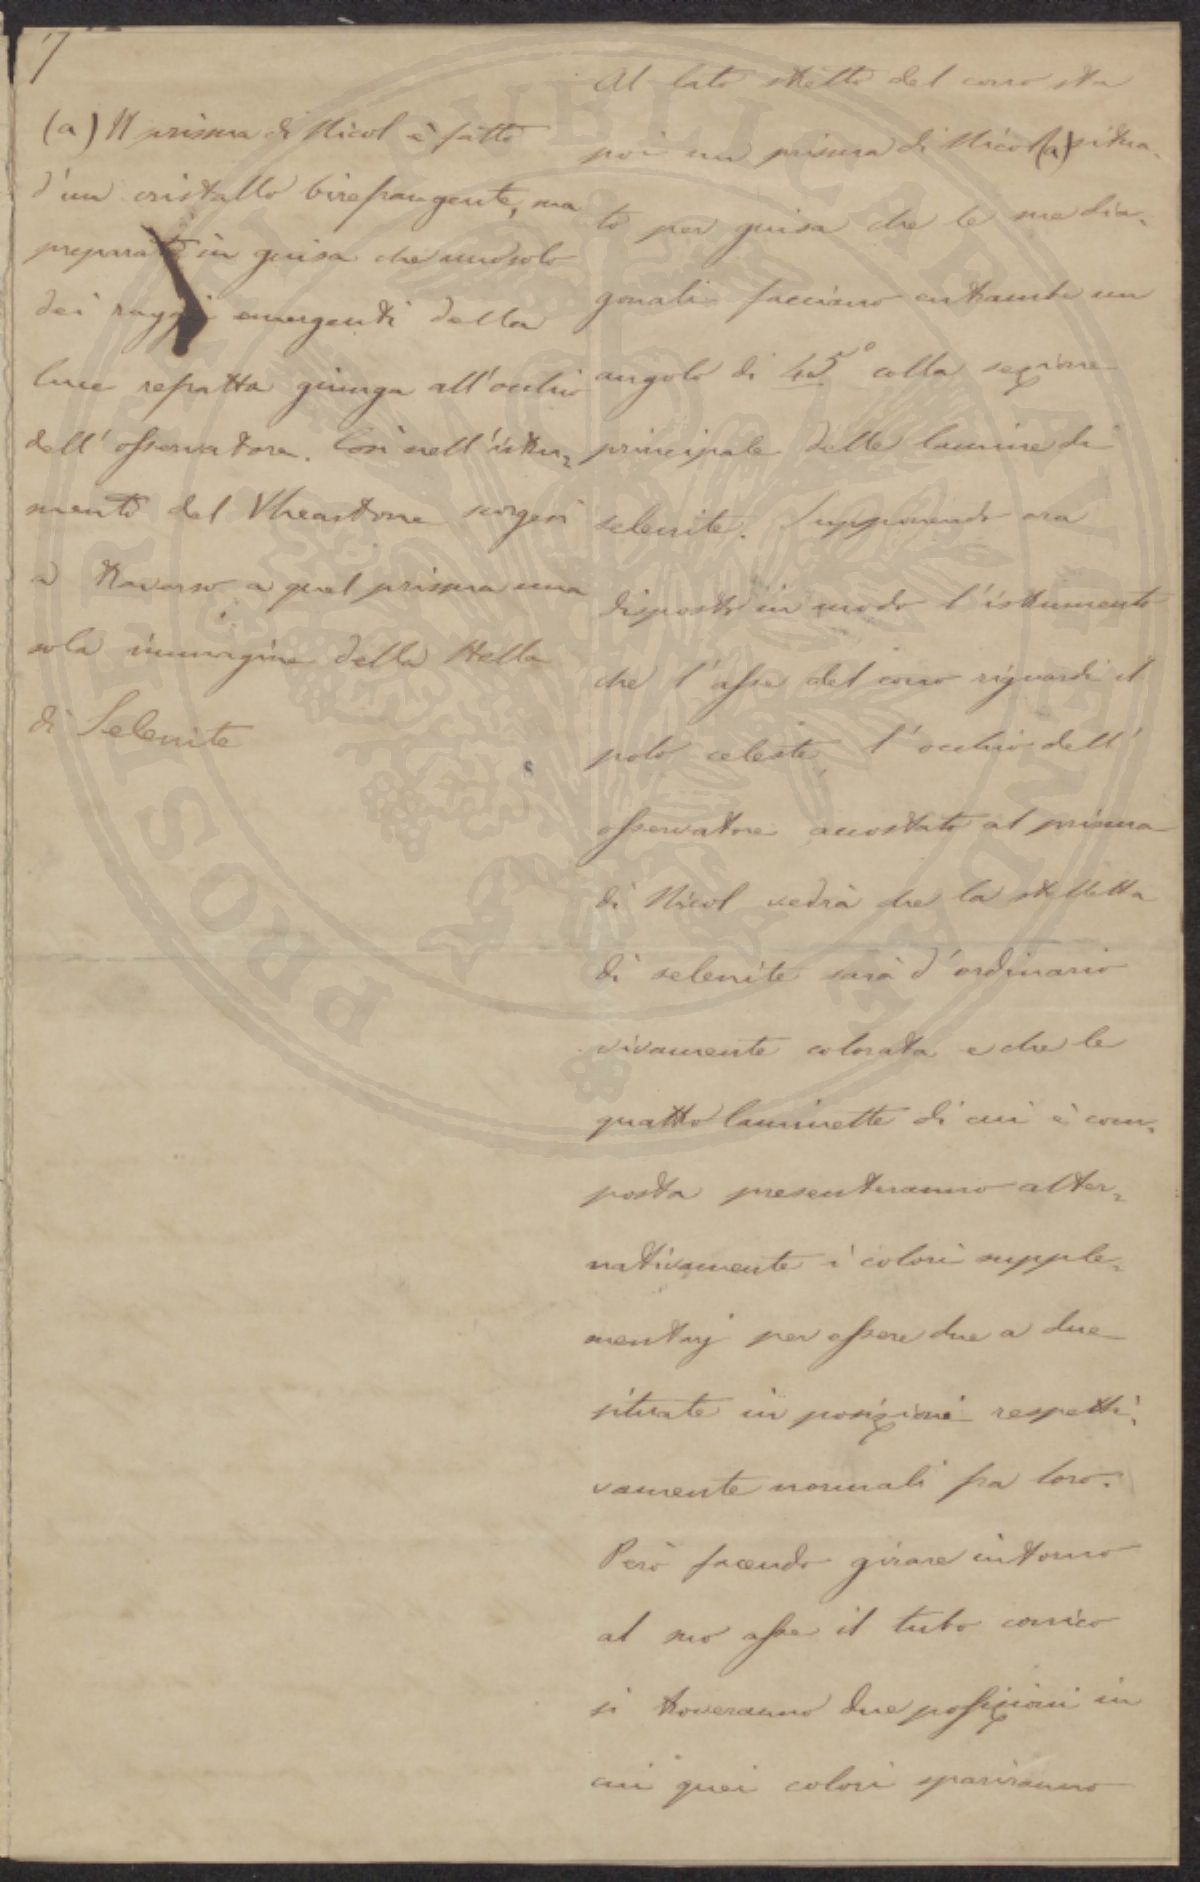 (a) Il prisma di Nicol è fatto
d'un cristallo birefrangente, ma
preparato in guisa che uno solo
dei raggi emergenti della
luce refratta giunga all'occhio
dell'osservatore. Così nell'istru=
mento del Vheastone scorgesi
a traverso a quel prisma una
sola immagine della stella
di Selenite
Al lato stretto del cono sta
poi un prisma di Nicol (a) situa=
to per guisa che le sue dia=
gonali facciano entrambe un
angolo di 45° colla sezione
principale delle lamine di
selenite. Supponendo ora
disposto in modo l'istrumento
che l'asse del cono riguardi il
polo celeste, l'occhio dell'
osservatore accostato al prisma
di Nicol vedrà che la stelletta
di selenite sarà d'ordinario
vivamente colorata e che le
quattro laminette di cui è com=
posta presenteranno alter=
nativamente i colori supple=
mentarj per essere due a due
situate in posizioni respetti=
vamente normali fra loro.
Però facendo girare intorno
al suo asse il tubo conico
si troveranno due possizioni in
cui quei colori spariranno
PVBLICAE